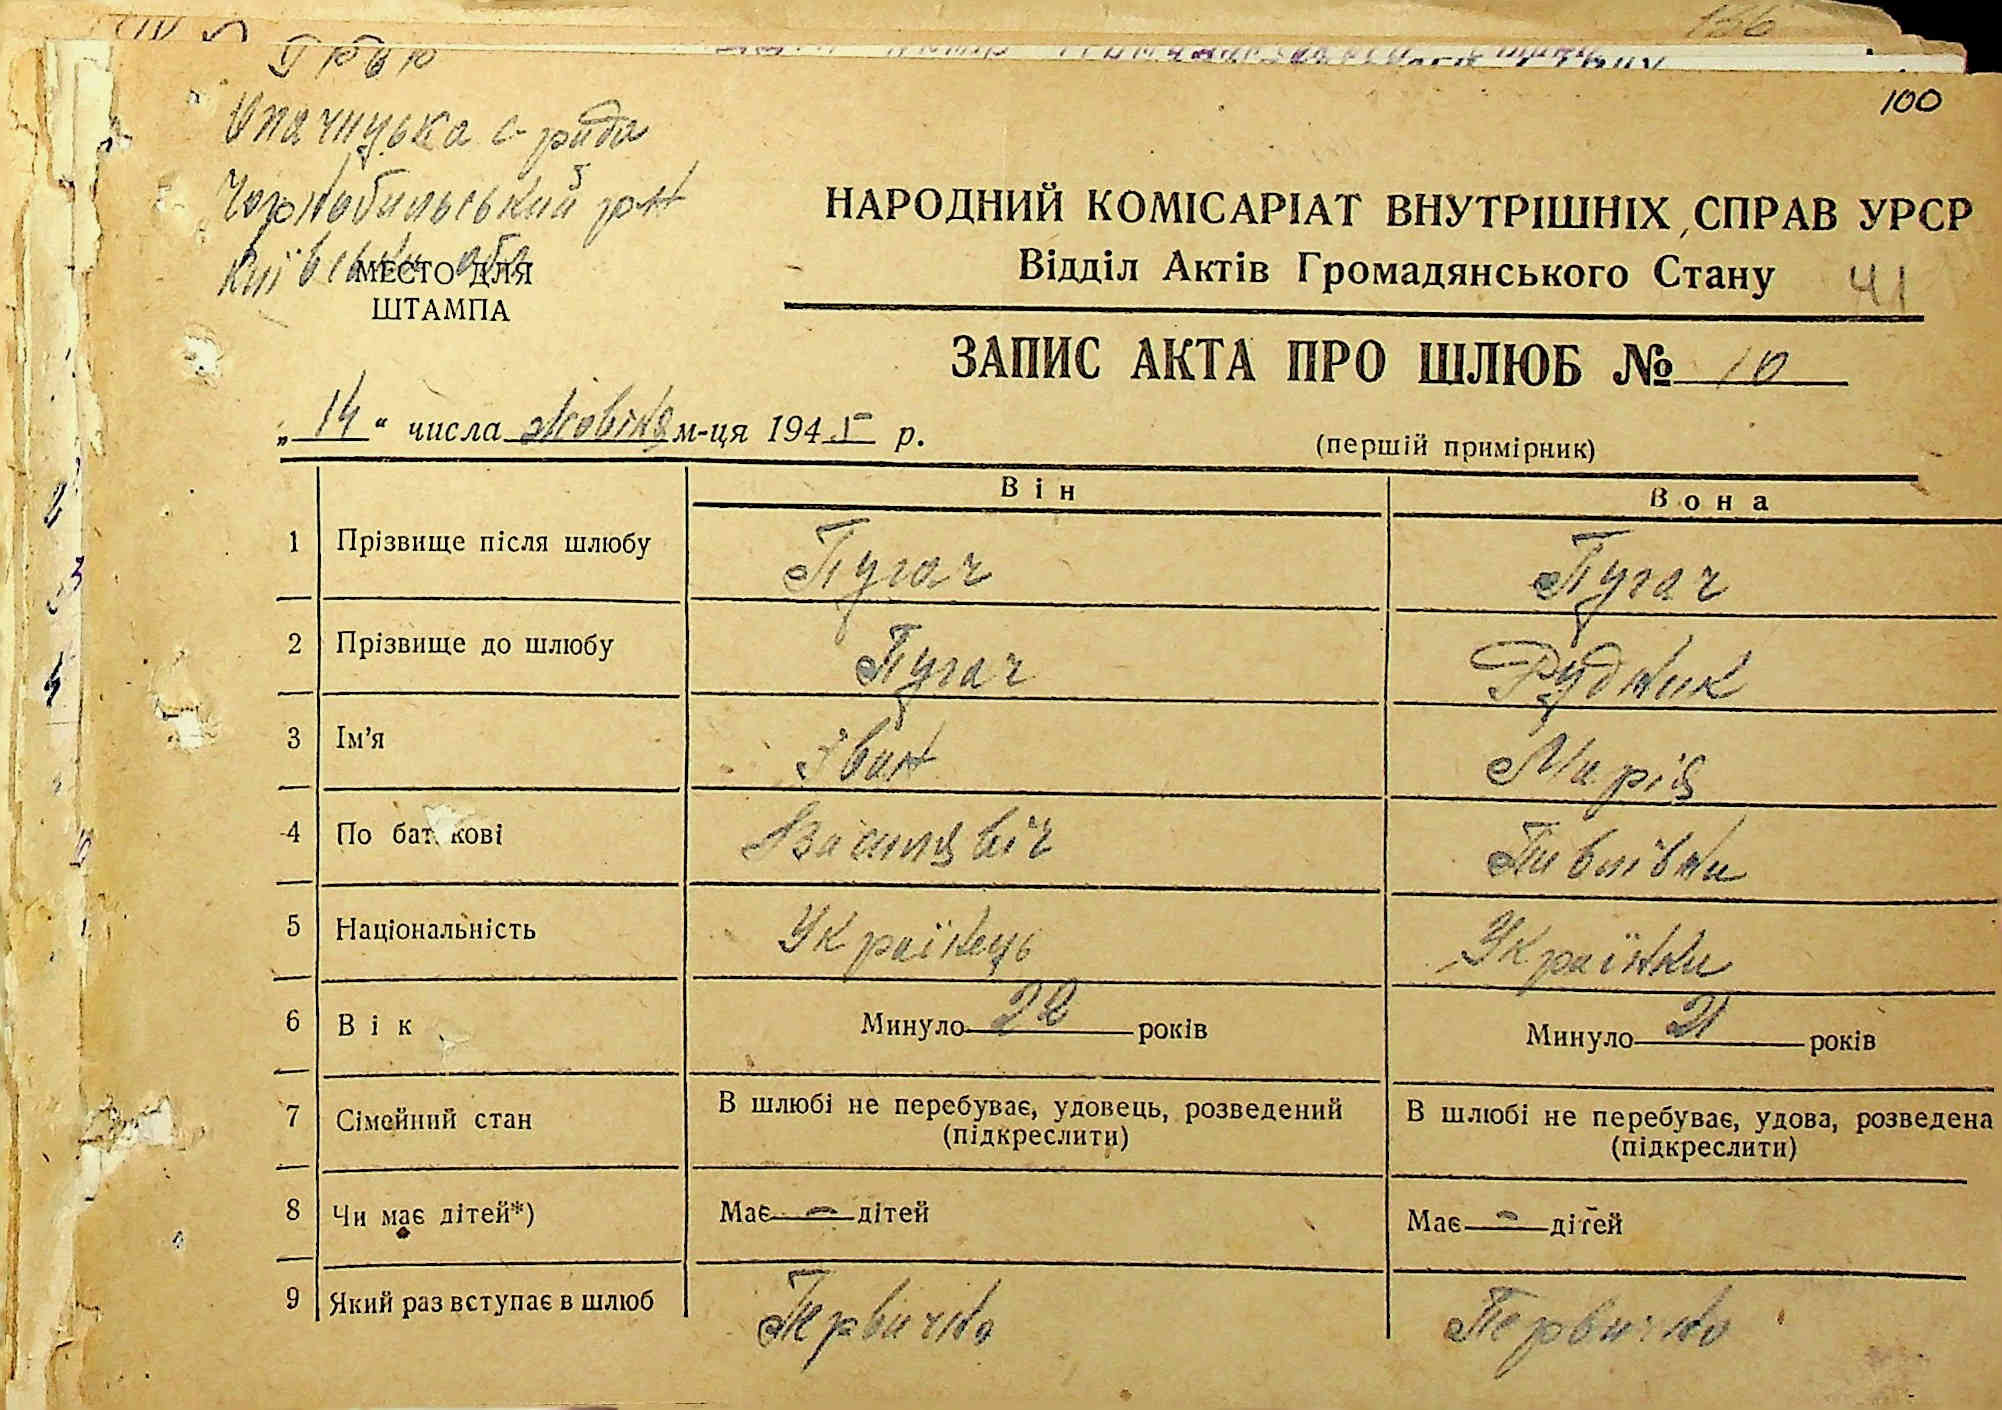 100
Опачицька с-рада
Чорнобильський р-н
Київськи обл
МЕСТО ДЛЯ
ШТАМПА
НАРОДНИЙ КОМІСАРІАТ ВНУТРІШНІХ СПРАВ УРСР
Відділ Актів Громадянського Стану 41
ЗАПИС АКТА ПРО ШЛЮБ № 10
„14“ числа жовтня м-ця 1945 р.
(першій примірник)
Він Вона
1 Прізвище після шлюбу Пугач Пугач
2 Прізвище до шлюбу Пугач Рудник
3 Ім'я Іван Марія
4 По батькові Василявіч Павлівна
5 Національність Українець Українка
6 Вік Минуло 22 років Минуло 21 років
7 Сімейний стан В шлюбі не перебуває, удовець, розведений В шлюбі не перебуває, удова, розведена
(підкреслити) (підкреслити)
8 Чи має дітей*) Має - дітей Має - дітей
9 Який раз вступає в шлюб Первично Первично